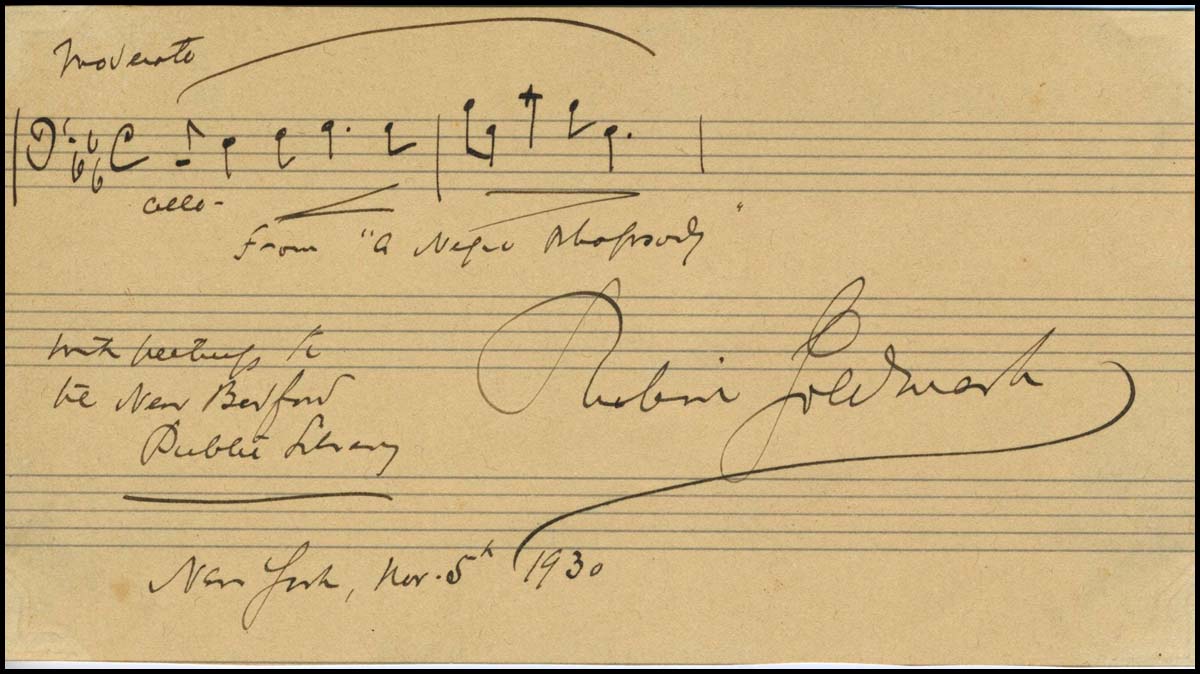 Moderato
cello -
From "A Negro Rhapsody"
with greetings to
the New Bedford
Public Library
Rubin Goldmark
New York, Nov. 5th 1930